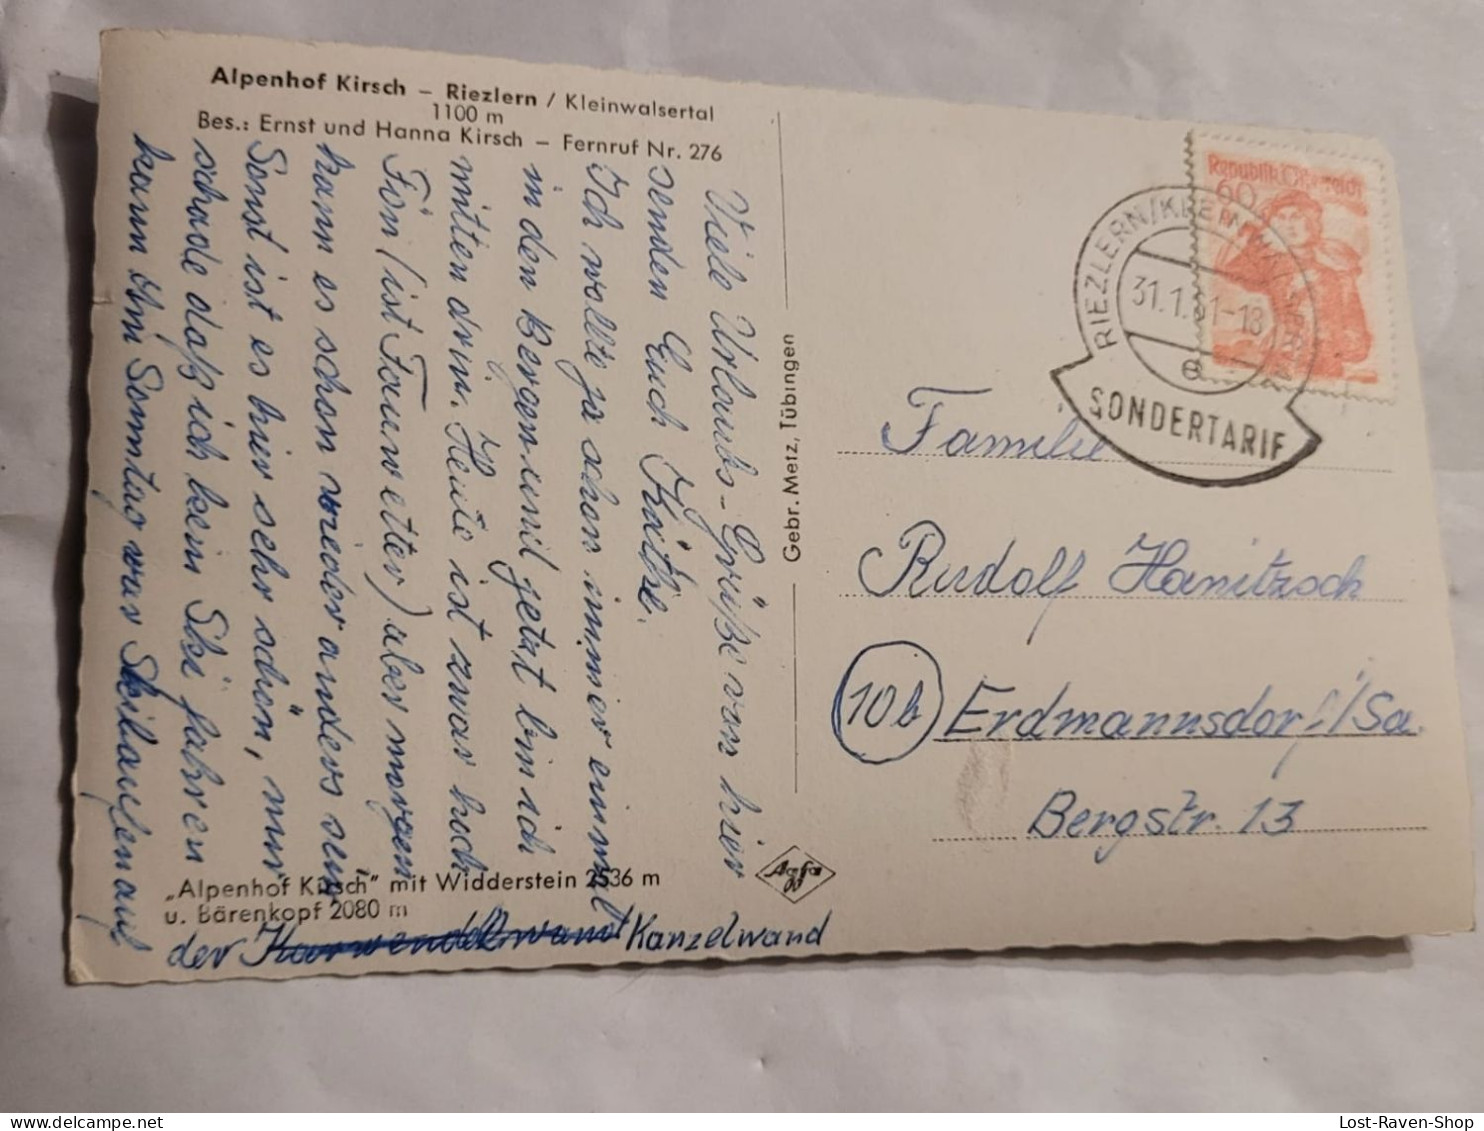 Alpenhof Kirsch – Riezlern / Kleinwalsertal
1100 m
Bes.: Ernst und Hanna Kirsch – Fernruf Nr. 276
Viele Urlaubs-Grüße von hier
senden Euch Käthe.
Ich wollte ja schon immer einmal
in den Bergen und jetzt bin ich
mitten drin. Heute ist zwar hoch
Fön (ist Tauwetter) aber morgen
kann es schon wieder anders sein
Sonst ist es hier sehr schön, nur
schade daß ich kein Ski fahren
kann Am Sonntag war Skilaufen auf
der Kanzelwand
„Alpenhof Kirsch" mit Widderstein 2536 m
u. Bärenkopf 2080 m
Gebr. Metz, Tübingen
Agfa
Republik Österreich
60
RIEZLERN/KLEINWALSERTAL
31.1.61-18
e
SONDERTARIF
Familie
Rudolf Hanitzsch
10b Erdmannsdorf/Sa.
Bergstr. 13
Lost-Raven-Shop